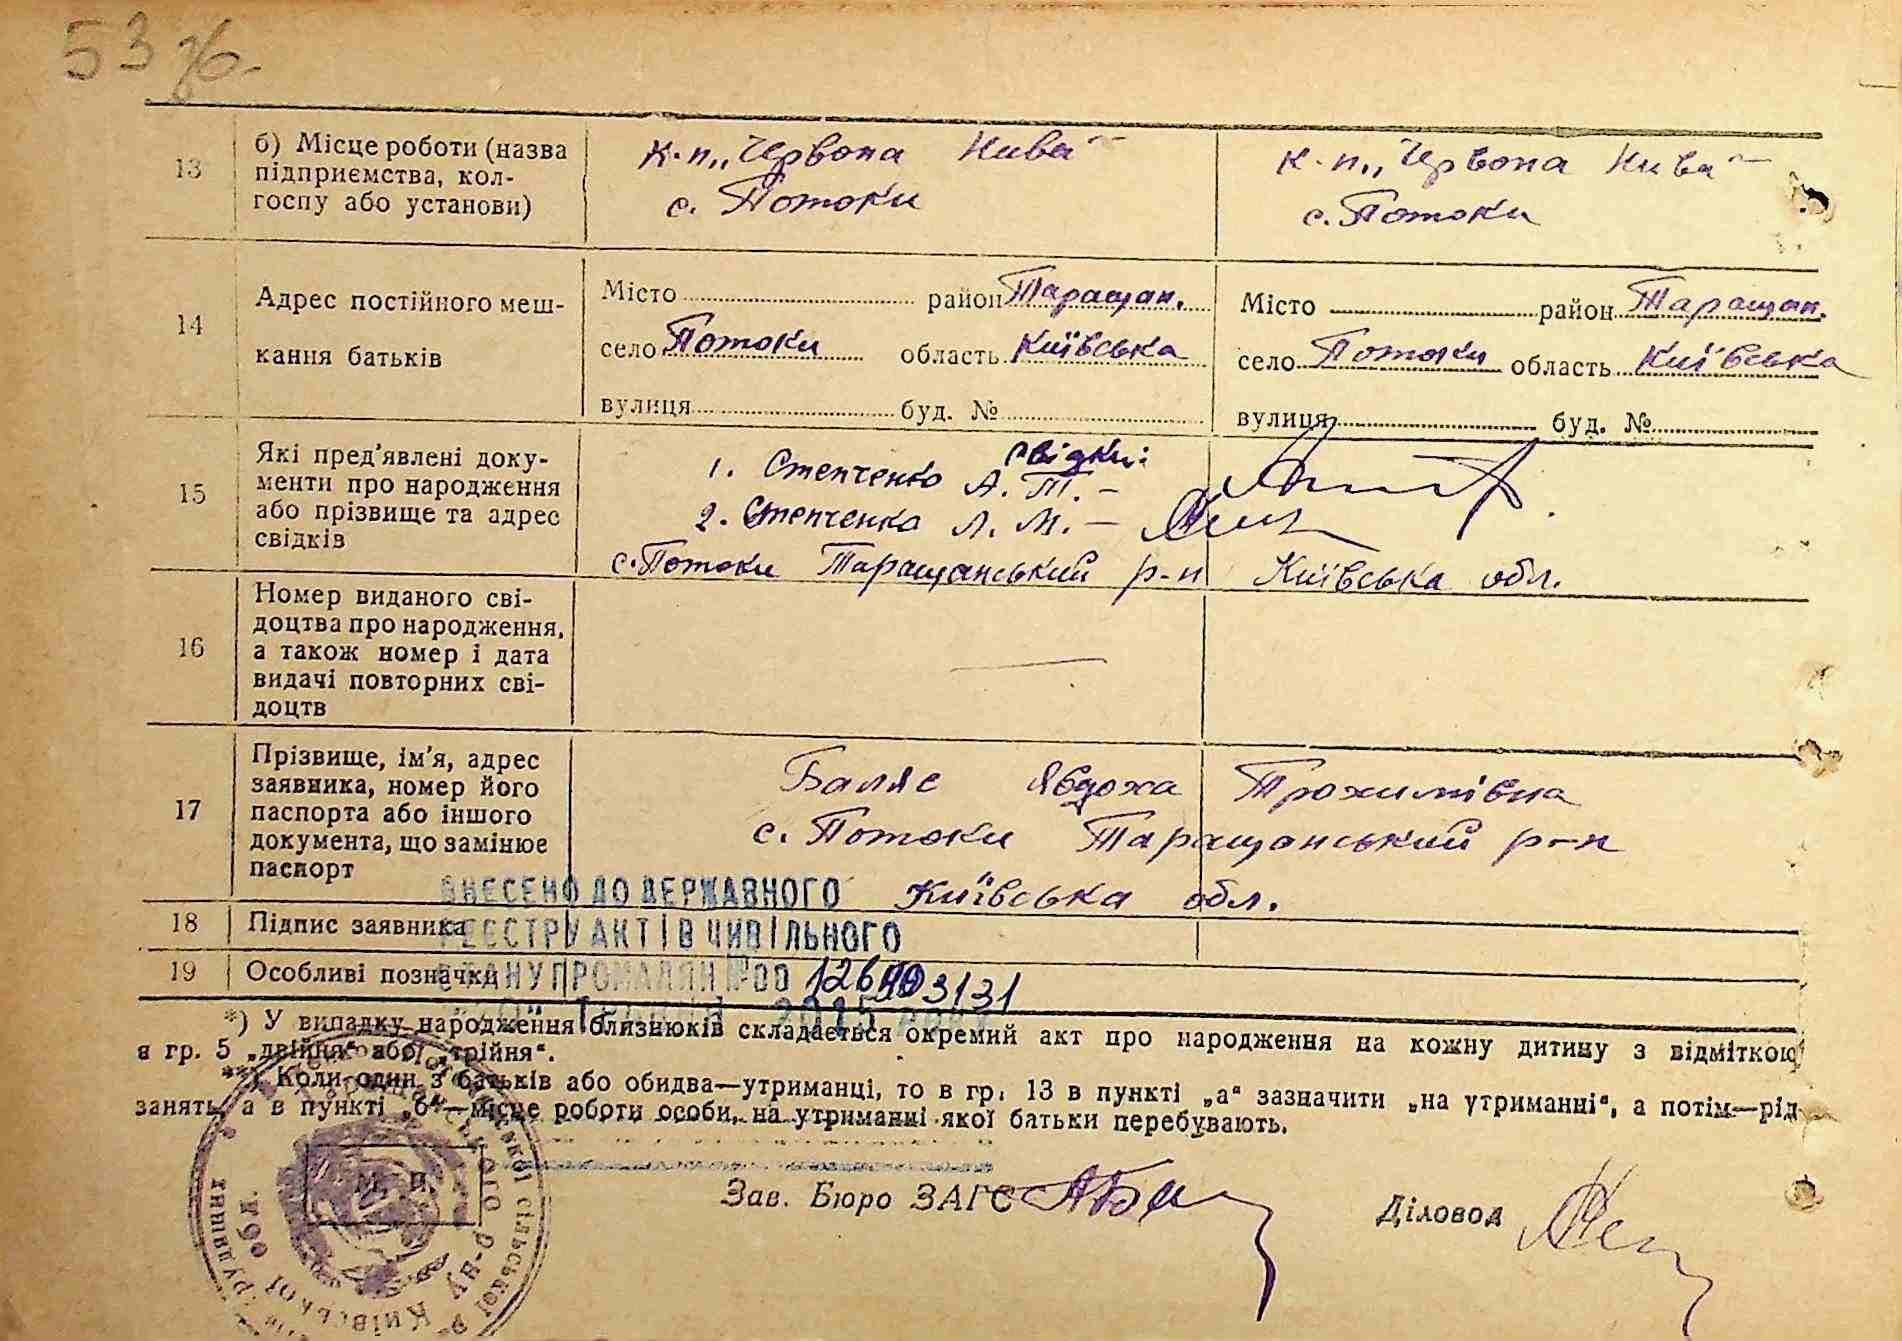 53 зб.
13
б) Місце роботи (назва
підприємства, кол-
госпу або установи)
к-п „Червона Нива“
с. Потоки
к-п „Червона Нива“
с. Потоки
14
Адрес постійного меш-
кання батьків
Місто район Таращан.
село Потоки область Київська
вулиця буд. №
Місто район Таращан.
село Потоки область Київська
вулиця буд. №
15
Які пред'явлені доку-
менти про народження
або прізвище та адрес
свідків
Свідки:
1. Степченко А. Т. –
2. Степченко Л. М. –
с. Потоки Таращанський р-н Київська обл.
16
Номер виданого сві-
доцтва про народження,
а також номер і дата
видачі повторних сві-
доцтв
—
17
Прізвище, ім'я, адрес
заявника, номер його
паспорта або іншого
документа, що замінює
паспорт
Баляс Явдоха Трохимівна
с. Потоки Таращанський р-н
Київська обл.
18
Підпис заявника
19
Особливі позначки
ВНЕСЕНО ДО ДЕРЖАВНОГО
РЕЄСТРУ АКТІВ ЦИВІЛЬНОГО
СТАНУ ГРОМАДЯН №00
2015 року
*) У випадку народження близнюків складається окремий акт про народження на кожну дитину з відміткою
в гр. 5 „двійня“ або „трійня“.
**) Коли один з батьків або обидва—утриманці, то в гр. 13 в пункті „а“ зазначити „на утриманні“, а потім—рід
занять, а в пункті „б“—місце роботи особи, на утриманні якої батьки перебувають.
М. П.
сільської
р-ну Київської обл.
Зав. Бюро ЗАГС
Діловод